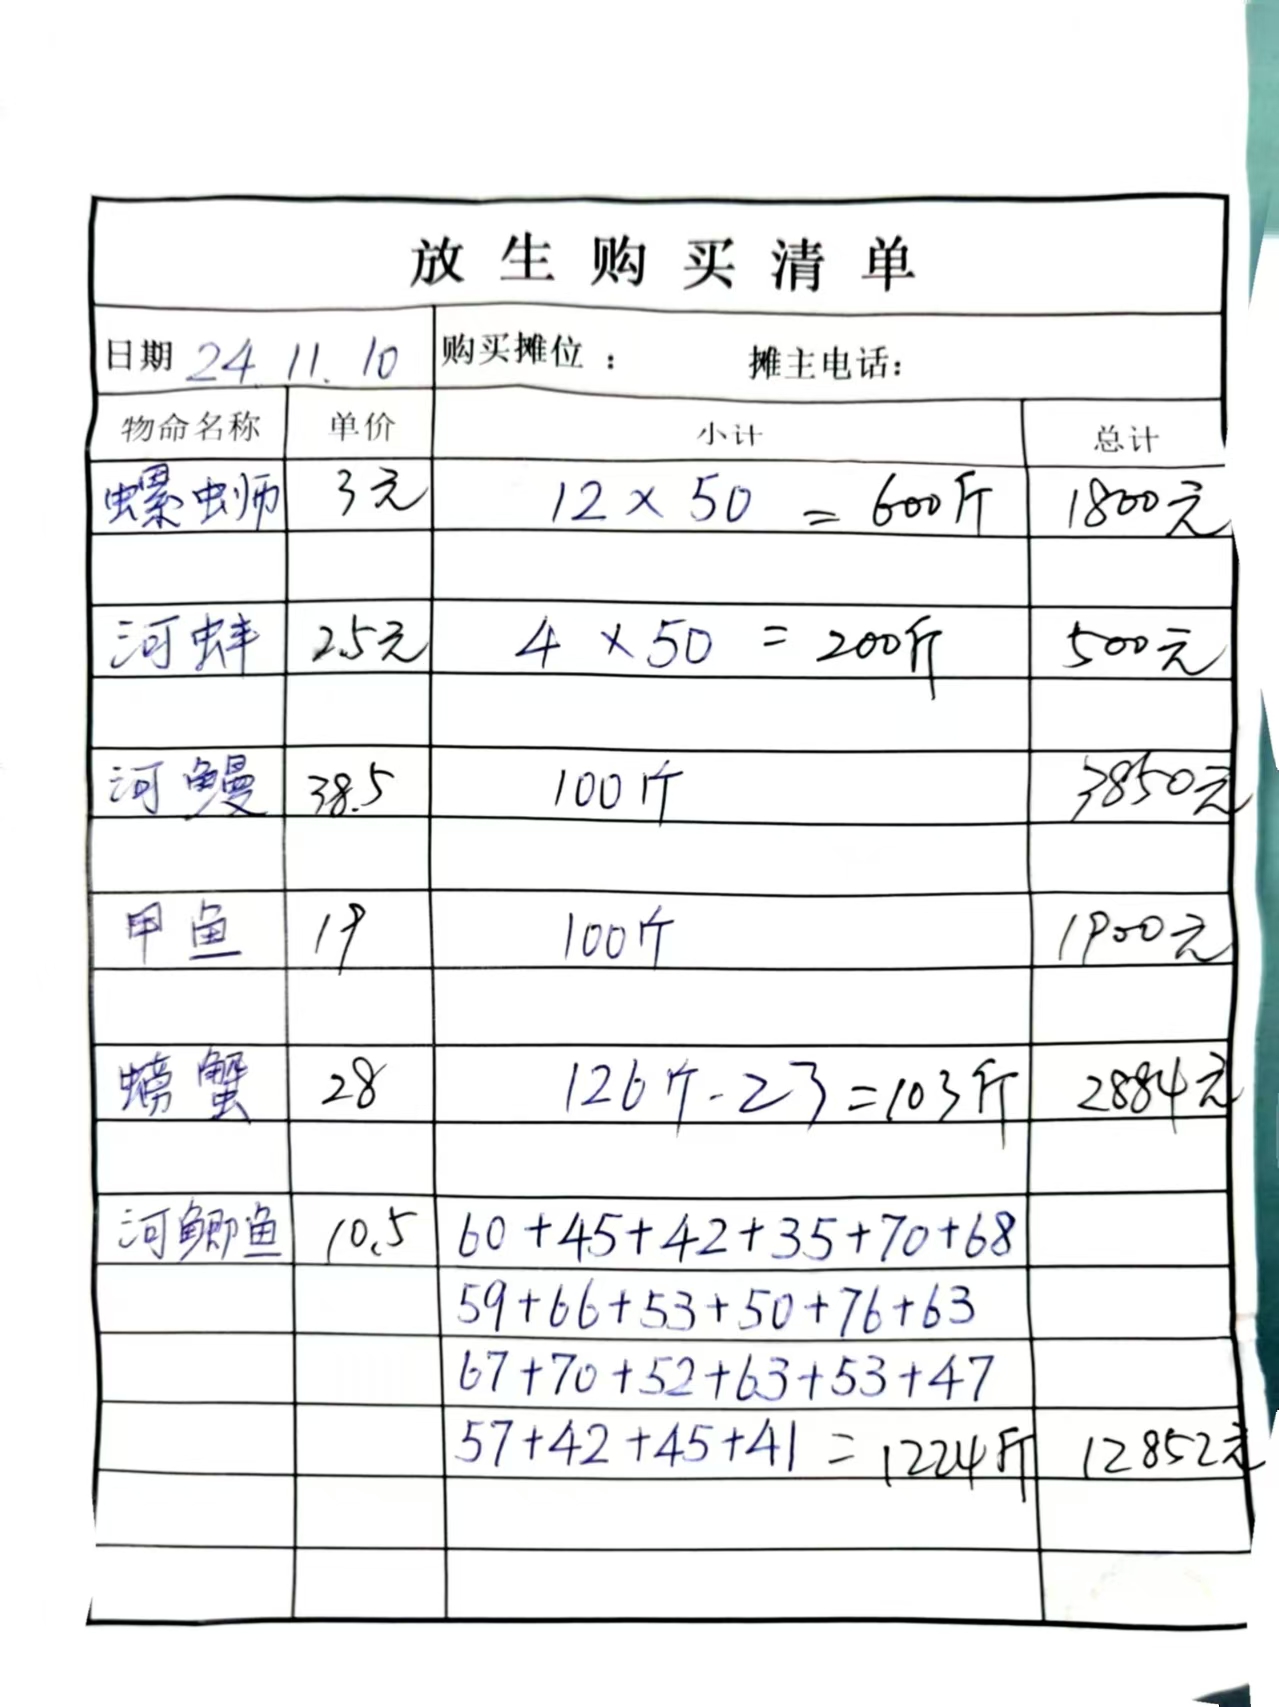 放生购买清单
日期 24 11. 10 购买摊位： 摊主电话：
物命名称 单价 小计 总计
螺蛳 3元 12×50 =600斤 1800元
河蚌 2.5元 4×50 =200斤 500元
河鳗 38.5 100斤 3850元
甲鱼 19 100斤 1900元
螃蟹 28 126斤-23=103斤 2884元
河鲫鱼 10.5 60+45+42+35+70+68
59+66+53+50+76+63
67+70+52+63+53+47
57+42+45+41 =1224斤 12852元